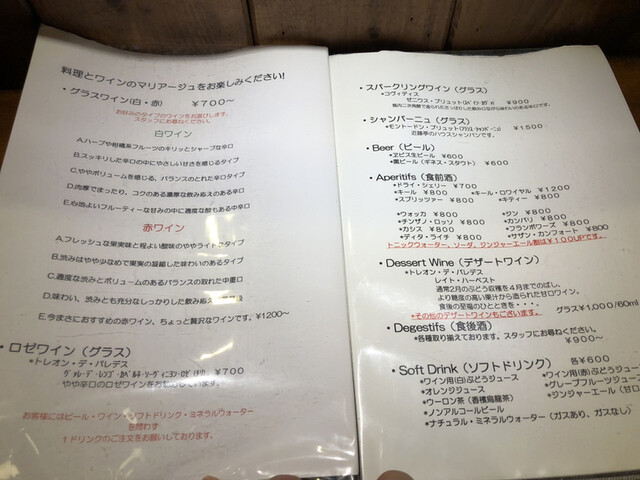 料理とワインのマリアージュをお楽しみください!
・グラスワイン(白・赤) ￥700～
お好みのタイプのワインをお選びします。
スタッフにお尋ねください。
白ワイン
A.ハーブや柑橘系フルーツのキリッとシャープな辛口
B.スッキリした辛口の中にやさしい甘さを感じるタイプ
C.ややボリュームを感じる、バランスのとれた辛口タイプ
D.肉厚でまったり、コクのある濃厚な飲みぬえのある辛口
E.心地よいフルーティーな甘みの中に適度な酸もある中辛口
赤ワイン
A.フレッシュな果実味と程よい酸味のややライトなタイプ
B.渋みはやや少なめで果実の凝縮した味わいのあるタイプ
C.適度な渋みとボリュームのあるバランスの取れた中重口
D.味わい、渋みとも充分なしっかりした飲み
E.今まさにおすすめの赤ワイン、ちょっと贅沢なワインです。￥1200～
・ロゼワイン (グラス)
・トレオン・デ・パレデス
￥700
やや辛口のロゼワインをお
ています。
お客様にはビール・ワイン・ソフトドリンク・ミネラルウォーター
を問わず
1ドリンクのご注文をお願いしております。
・スパークリングワイン (グラス)
・コヴィディス
ゼニウス・ブリュット
￥900
・シャンパーニュ (グラス)
・モントードン・ブリュット
￥1,500
近藤亭のハウスシャンパンです。
・Beer (ビール)
*ヱビス生ビール ￥600
*黒ビール (ギネス・スタウト) ￥600
・Aperitifs (食前酒)
*ドライ・シェリー ￥700
*キール ￥800 *キール・ロワイヤル ￥1200
*スプリッツァー ￥800 *キティー ￥800
*ウォッカ ￥800 *ジン ￥800
*チンザノ・ロッソ ￥800 *カンパリ ￥800
*カシス ￥800 *フランボワーズ ￥800
*ディタ・ライチ ￥800 *サザン・カンフォート ￥800
トニックウォーター、ソーダ、ジンジャーエール割は￥100UPです。
・Dessert Wine (デザートワイン)
・トレオン・デ・パレデス
レイト・ハーベスト
通常2月のぶどう収穫を4月までのばし、
より糖度の高い果汁から造られた甘口ワイン。
食後の至福のひとときを・・・。
グラス￥1,000/60ml
*その他のデザートワインもございます。
・Degestifs (食後酒)
*各種取り揃えております。スタッフにお尋ねください。
￥900～
・Soft Drink (ソフトドリンク) 各￥600
*ワイン用(白)ぶどうジュース *ワイン用(赤)ぶどうジュース
*オレンジジュース *グレープフルーツジュース
*ウーロン茶 (香檳烏龍茶) *ジンジャーエール (甘口
*ノンアルコールビール
*ナチュラル・ミネラルウォーター (ガスあり、ガスなし)